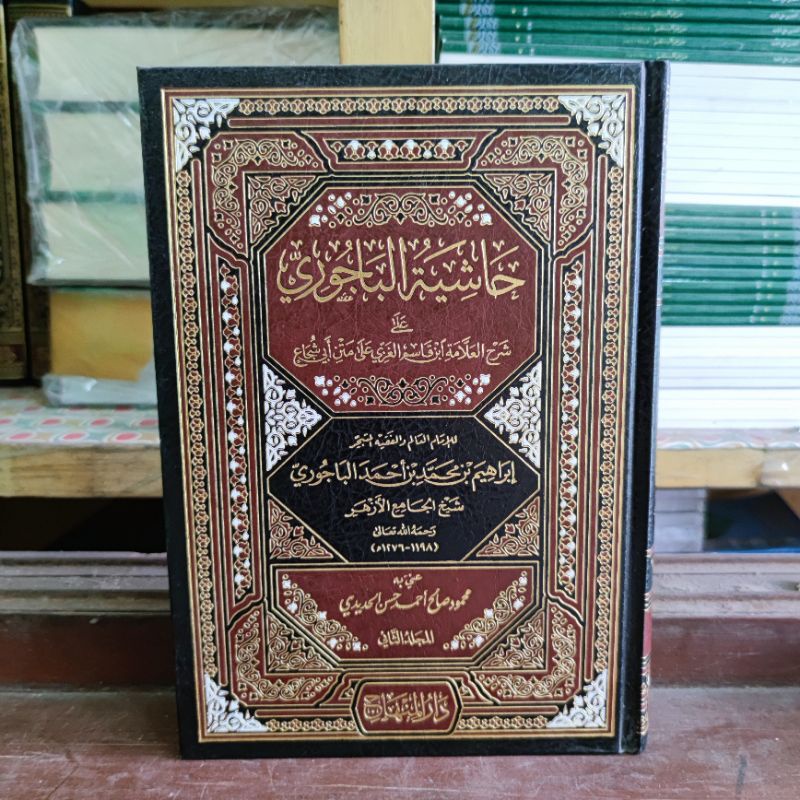 حَاشِيَةُ البَاجُورِيِّ
عَلَىٰ
شَرْحِ العَلَّامَةِ ابْنِ قَاسِمٍ الغَزِّيِّ عَلَىٰ مَتْنِ أَبِي شُجَاعٍ
للإمام العالم والفقيه المتبحر
إبراهيم بن محمد بن أحمد الباجوري
شيخ الجامع الأزهر
رحمه الله تعالى
(١١٩٨-١٢٧٦هـ)
عني به
محمود صالح أحمد حسن الحديدي
المجلد الثاني
دار المنهاج